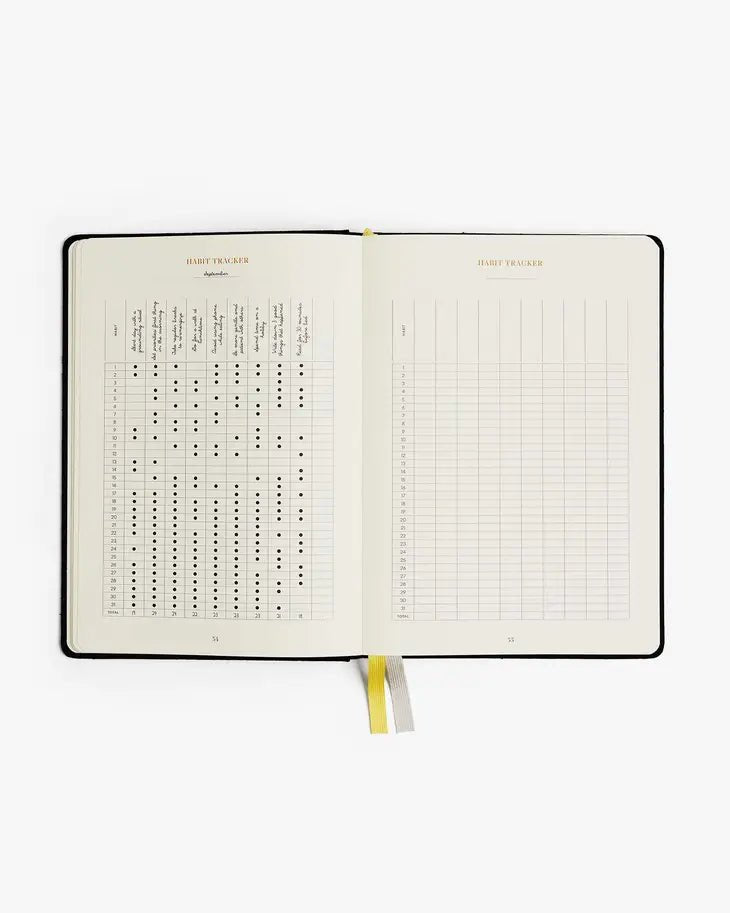 HABIT TRACKER
september
HABIT
Start day with a
grounding ritual
first thing
in the morning
Take regular breaks
to
Go for a walk at
lunchtime
Avoid using phone
while eating
Be more gentle and
patient with others
on a
hobby
Write down 3 good
things that happened
Read for 30 minutes
before bed
1
2
3
4
5
6
7
8
9
10
11
12
13
14
15
16
17
18
19
20
21
22
23
24
25
26
27
28
29
30
31
TOTAL 21 22 23
54
HABIT TRACKER
HABIT
1
2
3
4
5
6
7
8
9
10
11
12
13
14
15
16
17
18
19
20
21
22
23
24
25
26
27
28
29
30
31
TOTAL
55